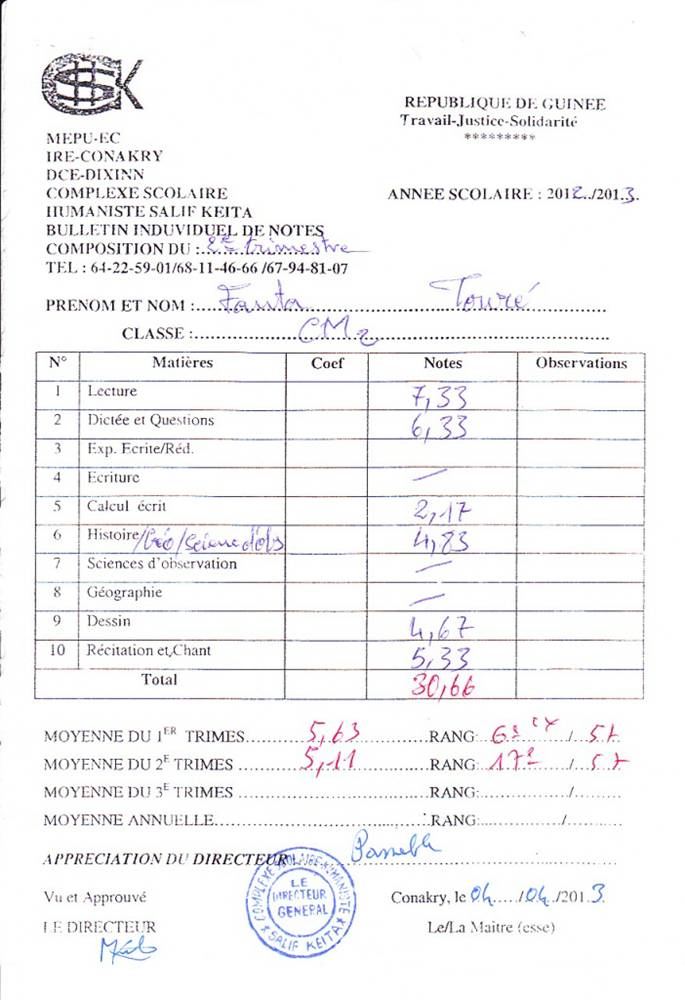 REPUBLIQUE DE GUINEE
Travail-Justice-Solidarité
*********
MEPU-EC
IRE-CONAKRY
DCE-DIXINN
COMPLEXE SCOLAIRE
HUMANISTE SALIF KEITA
ANNEE SCOLAIRE : 2012../2013.
BULLETIN INDUVIDUEL DE NOTES
COMPOSITION DU : 2e trimestre
TEL : 64-22-59-01/68-11-46-66 /67-94-81-07
PRENOM ET NOM : Fanta Touré
CLASSE : CM2
N° Matières Coef Notes Observations
1 Lecture 7,33
2 Dictée et Questions 6,33
3 Exp. Ecrite/Réd.
4 Ecriture —
5 Calcul écrit 2,17
6 Histoire/Géo/Science d'obs 4,83
7 Sciences d'observation —
8 Géographie —
9 Dessin 4,67
10 Récitation et Chant 5,33
Total 30,66
MOYENNE DU 1ER TRIMES 5,63 RANG: 6e ex / 57
MOYENNE DU 2E TRIMES 5,11 RANG: 17e / 57
MOYENNE DU 3E TRIMES RANG: /
MOYENNE ANNUELLE RANG: /
APPRECIATION DU DIRECTEUR Passable
Vu et Approuvé
Conakry, le 04 /04 /2013.
LE DIRECTEUR
Le/La Maitre (esse)
COMPLEXE SCOLAIRE HUMANISTE
LE
DIRECTEUR
GENERAL
SALIF KEITA